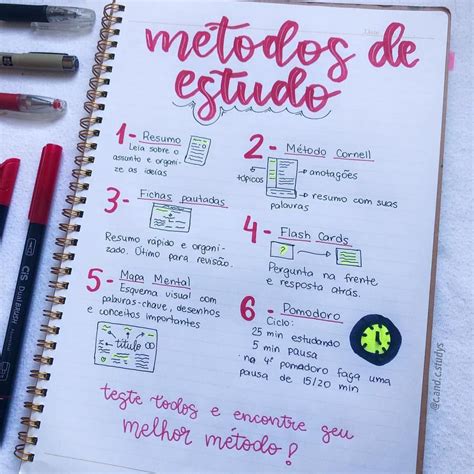 métodos de
estudo
1- Resumo
Leia sobre o
assunto e organi-
ze as ideias
2- Método Cornell
tópicos
anotações
resumo com suas
palavras
3- Fichas pautadas
Resumo rápido e organi-
zado. Ótimo para revisão.
4- Flash Cards
?
Pergunta na frente
e resposta atrás.
5- Mapa Mental
Esquema visual com
palavras-chave, desenhos
e conceitos importantes
título
6- Pomodoro
Ciclo:
25 min estudando
5 min pausa
na 4º pomodoro faça uma
pausa de 15/20 min
teste todos e encontre seu
melhor método!
@c.and.c.studys
CiS Dual BRUSH